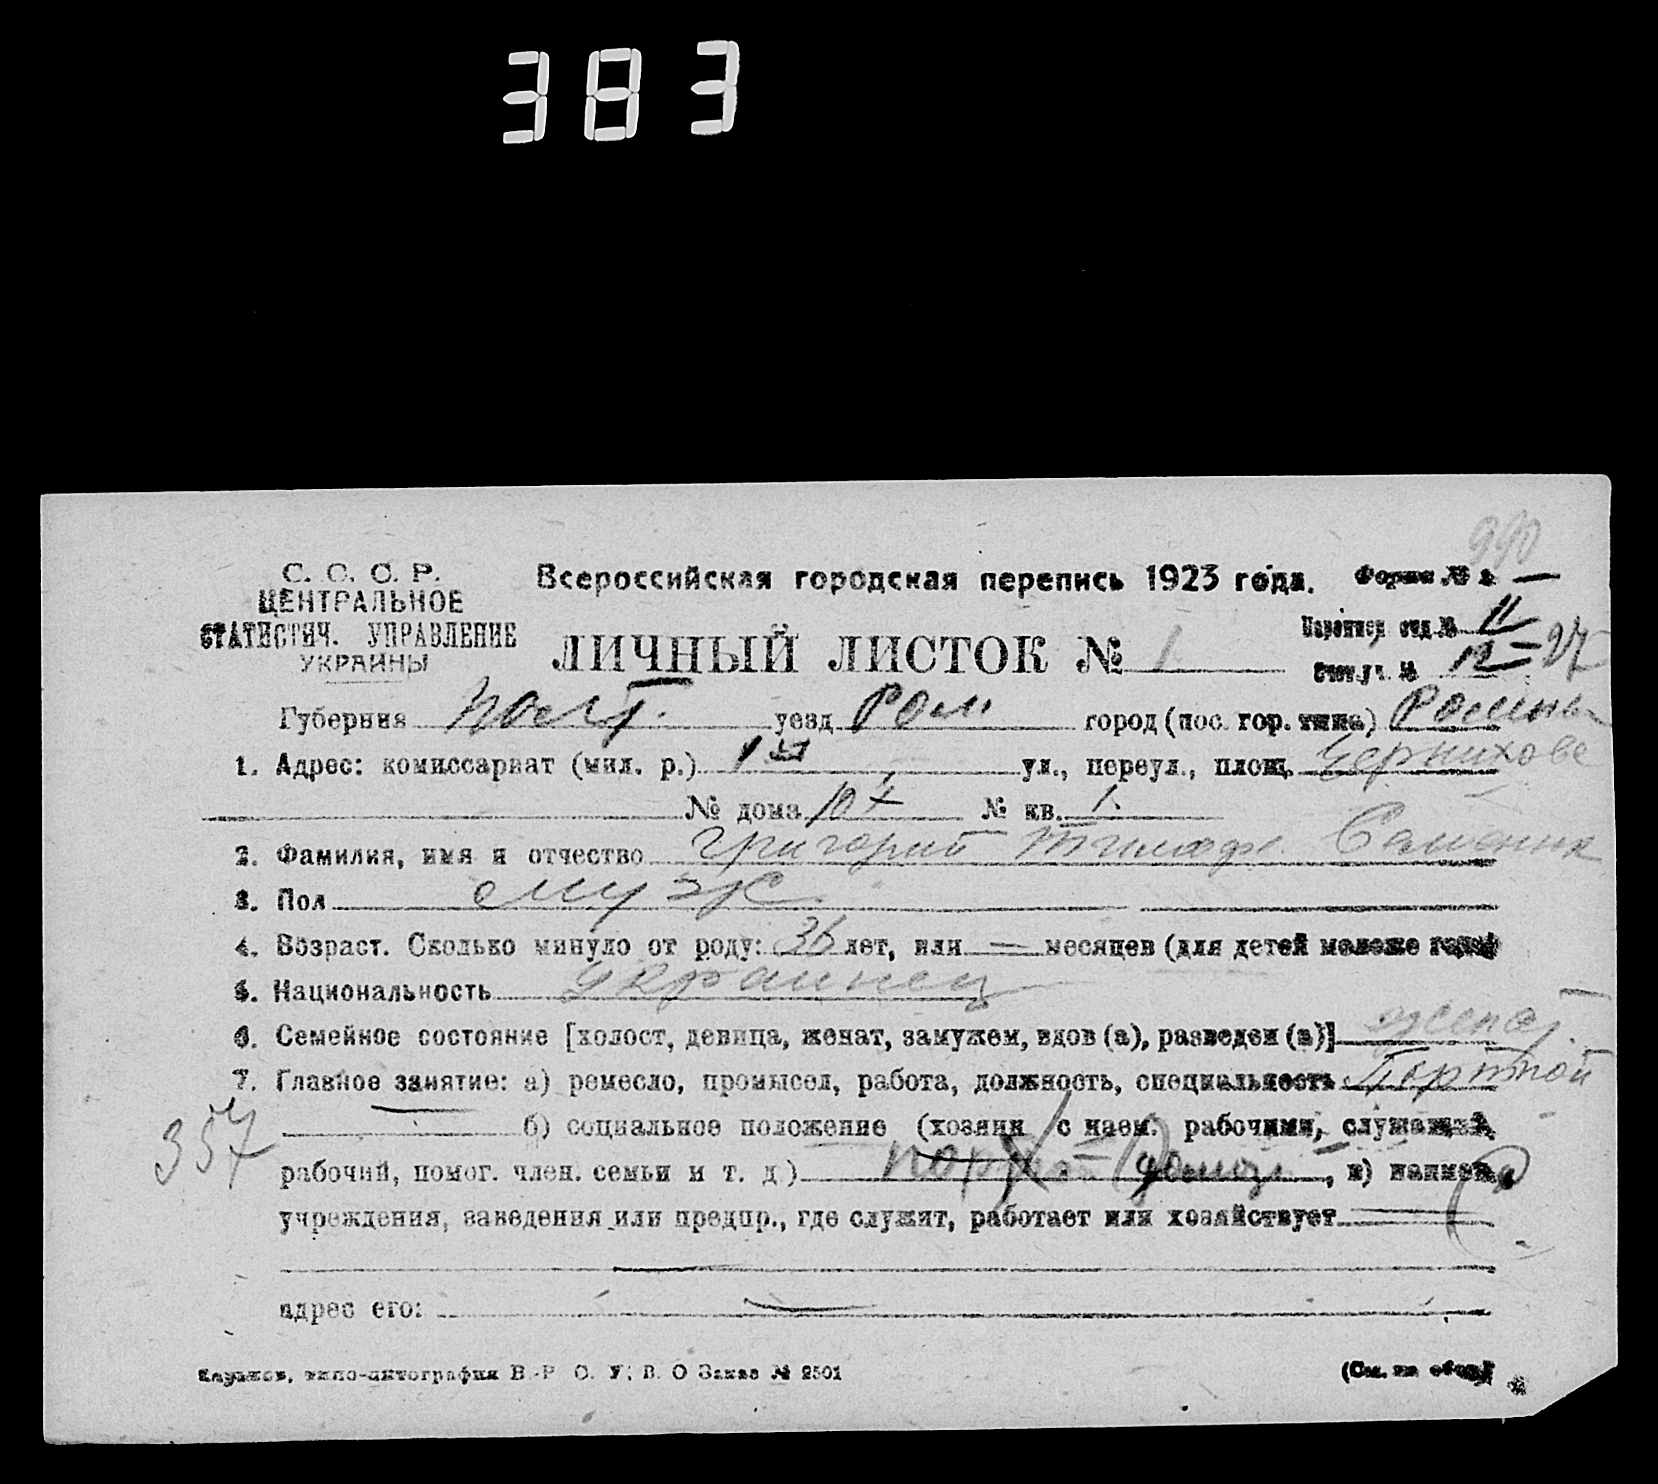 383
990
С. С. С. Р.
ЦЕНТРАЛЬНОЕ
СТАТИСТИЧ. УПРАВЛЕНИЕ
УКРАИНЫ
Всероссийская городская перепись 1923 года.
Форма № 1
ЛИЧНЫЙ ЛИСТОК № 1
Переписн отд. № 11
Счетн. уч. № 12 27
Губерния Полт. уезд Ром город (пос. гор. типа) Ромны
1. Адрес: комиссариат (мил. р.) 1ый ул., переул., площ. Черникове
№ дома 107 № кв. 1.
2. Фамилия, имя и отчество Григорий Тимоф. Саменник
3. Пол муж
4. Возраст. Сколько минуло от роду: 36 лет, или — месяцев (для детей моложе года)
5. Национальность Украинец
6. Семейное состояние [холост, девица, женат, замужем, вдов (а), разведен (а)] женат
7. Главное занятие: а) ремесло, промысел, работа, должность, специальность Портной
357
б) социальное положение (хозяин с наем. рабочими, служащий,
рабочий, помог. член. семьи и т. д.) , в) наимен.
учреждения, заведения или предпр., где служит, работает или хозяйствует
адрес его:
Харьков, типо-литография В.-Р. С. У. В. О Заказ № 2501
(См. на обор.)